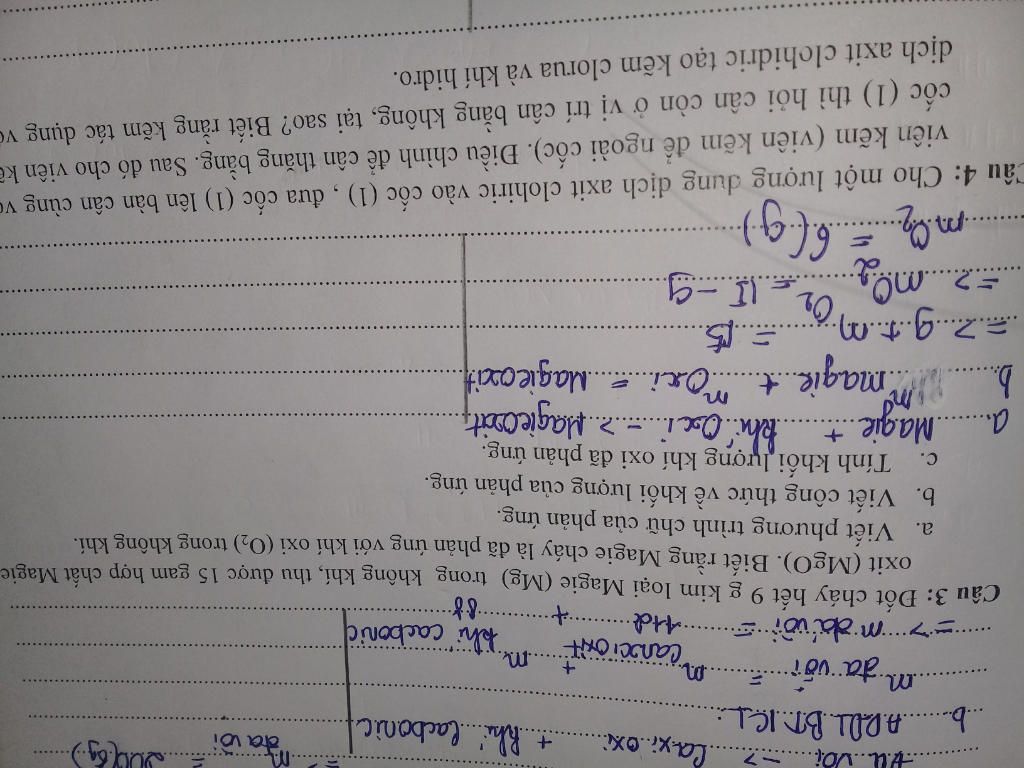 Đá vôi -> Caxi oxi + khí cacbonic
=> m đá vôi = 200(kg)
b. ADĐL BT KL
m đá vôi = m canxi oxit + m khí cacbonic
=> m đá vôi = 112 + 88
Câu 3: Đốt cháy hết 9 g kim loại Magie (Mg) trong không khí, thu được 15 gam hợp chất Magie
oxit (MgO). Biết rằng Magie cháy là đã phản ứng với khí oxi (O₂) trong không khí.
a. Viết phương trình chữ của phản ứng.
b. Viết công thức về khối lượng của phản ứng.
c. Tính khối lượng khí oxi đã phản ứng.
a. Magie + khí Oxi => Magieoxit
b. m magie + m Oxi = Magieoxit
=> 9 + m O₂ = 15
=> mO₂ = 15 - 9
mO₂ = 6 (g)
Câu 4: Cho một lượng dung dịch axit clohiric vào cốc (1) , đưa cốc (1) lên bàn cân cùng
viên kẽm (viên kẽm để ngoài cốc). Điều chỉnh để cân thăng bằng. Sau đó cho viên
cốc (1) thì hỏi cân còn ở vị trí cân bằng không, tại sao? Biết rằng kẽm tác dụng
dịch axit clohidric tạo kẽm clorua và khí hidro.